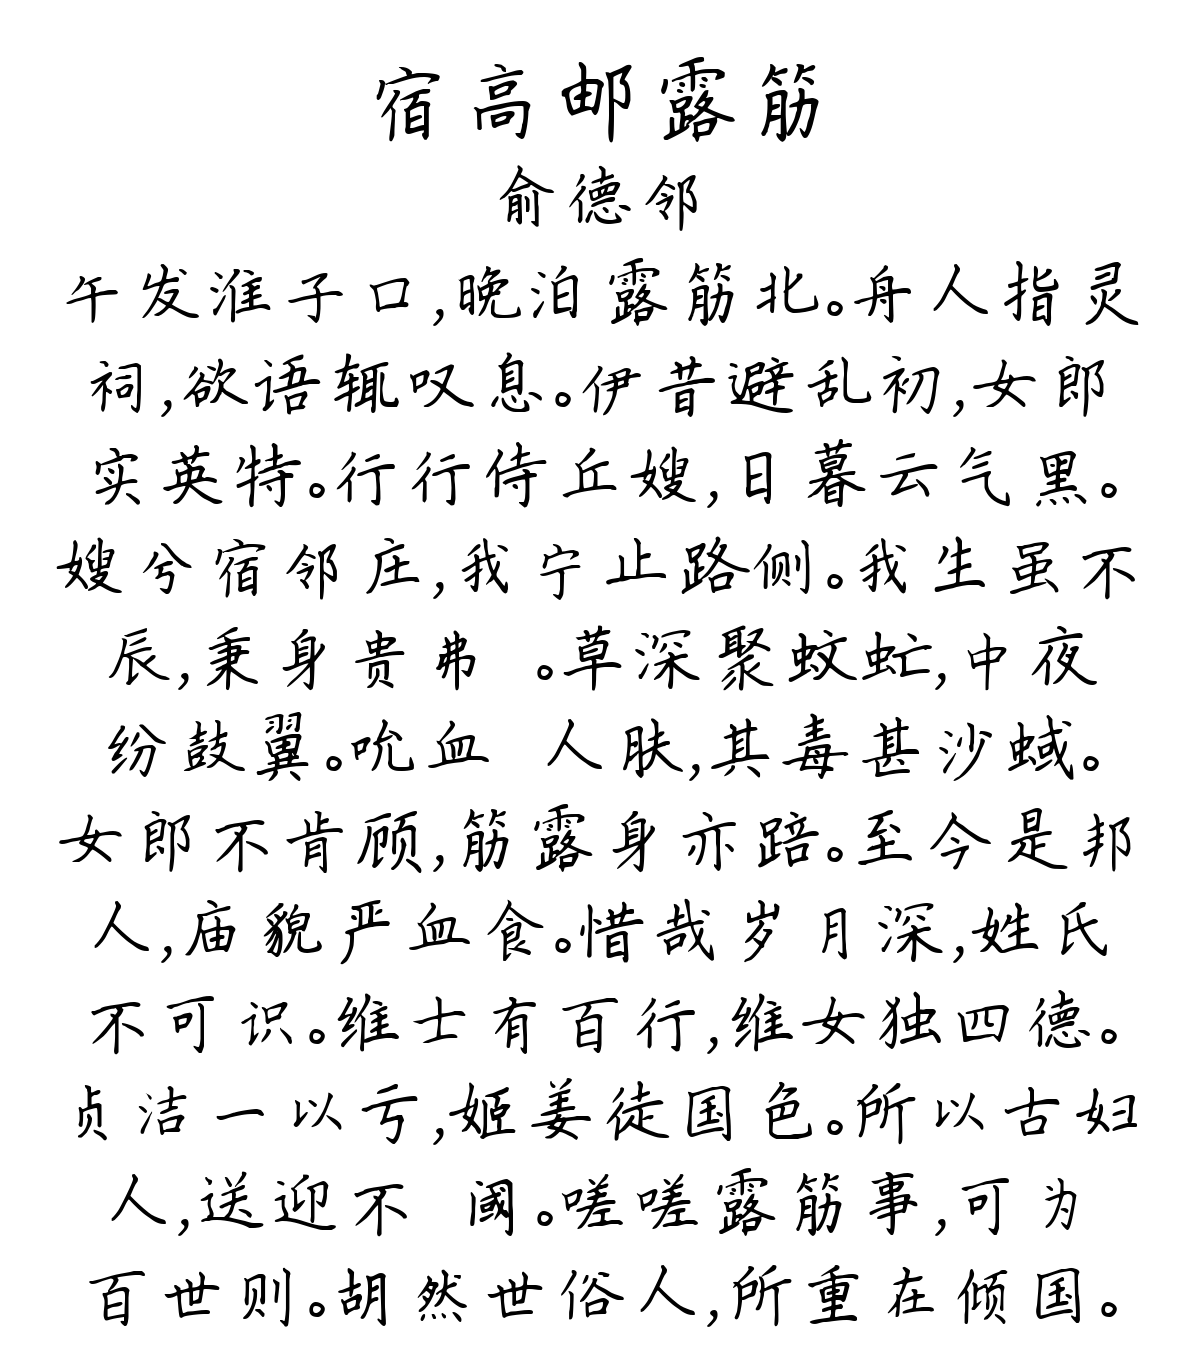 宿高邮露筋
俞德邻
午发淮子口,晚泊露筋北。舟人指灵
祠,欲语辄叹息。伊昔避乱初,女郎
实英特。行行侍丘嫂,日暮云气黑。
嫂兮宿邻庄,我宁止路侧。我生虽不
辰,秉身贵弗 。草深聚蚊虻,中夜
纷鼓翼。吮血 人肤,其毒甚沙蜮。
女郎不肯顾,筋露身亦踣。至今是邦
人,庙貌严血食。惜哉岁月深,姓氏
不可识。维士有百行,维女独四德。
贞洁一以亏,姬姜徒国色。所以古妇
人,送迎不 阈。嗟嗟露筋事,可为
百世则。胡然世俗人,所重在倾国。